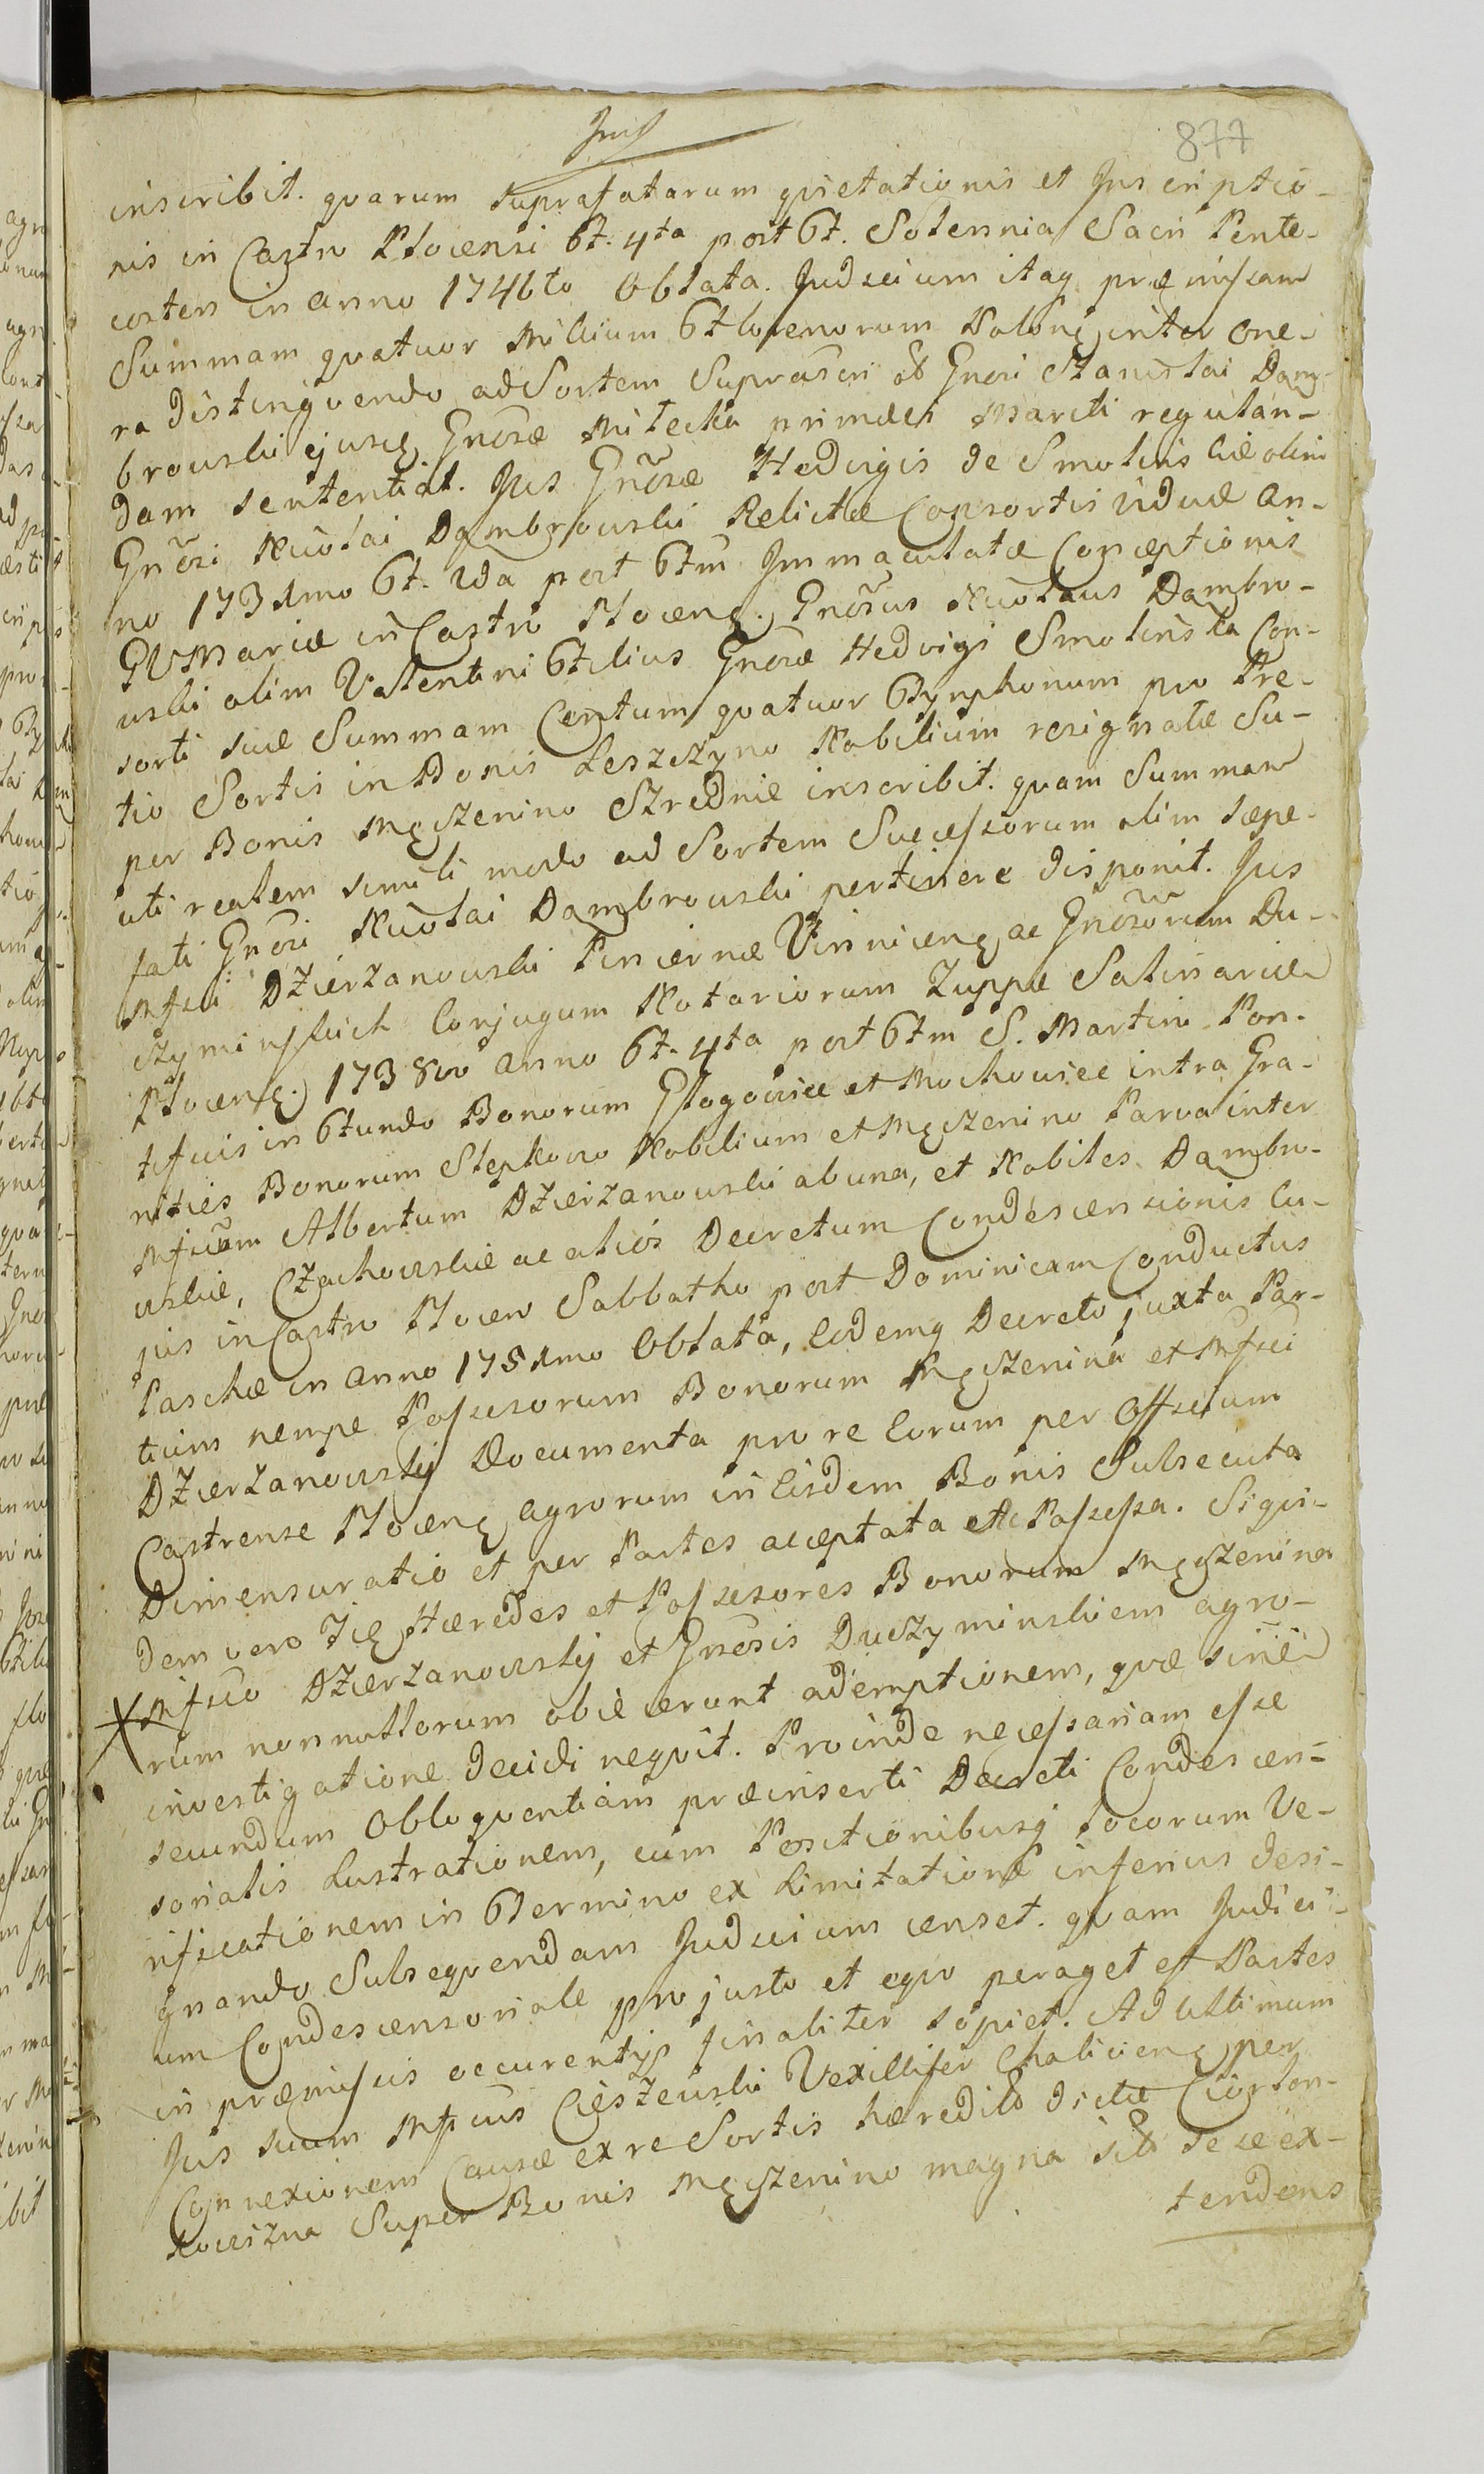 Jus
877
inscribit. quarum suprafatarum quietationis et Inscriptio-
nis in Castro Plocensi Ft. 4ta post Ft. Solennia Sacri Pente-
costen in anno 1746to Oblata. Judicium itaq præmissam
Summam quatuor Millium Florenorum Polonę inter One-
ra distingvendo ad Sortem Suprascri ol Gnosi Stanislai Dąm-
browski ejusq Gnosæ Milecka primæ Mariti regulan-
dam sententiat. Jus Gnosæ Hedvigis de Smolinskie olim
Gnosi Nicolai Dąmbrowski Relictæ Consortis viduæ An-
no 1731mo Ft. 2da post Ftm Immaculatæ Conceptionis
BVMariæ in Castro Plocenę. Gnosus Nicolaus Dąmbro-
wski olim Valentini Filius Gnosæ Hedvigi Smolinska Con-
sorti suæ Summam Centum quatuor Tymphonum pro Pre-
tio Sortis in Bonis Leszczyno Nobilium resignatæ Su-
per Bonis Męczenino Szrednie inscribit. quam Summam
uti realem simili modo ad Sortem Successorum olim sæpe-
fati Gnosi Nicolai Dąmbrowski pertinere disponit. Jus
Mfici Dzierzanowski Pincernæ Vinnicenę ac Gnosorum Du-
czyminskich Conjugum Notariorum Zuppæ Salinariæ
Plocenę. 1738vo anno Ft. 4ta post Ftm S. Martini Pon-
tificis in Fundo Bonorum Głogowice et Mochowice intra Gra-
nities Bonorum Stępkowo Nobilium et Męczenino Parva inter
Mficum Albertum Dzierzanowski ab una, et Nobiles Dąmbro-
wskie, Czachowskie ac alios Decretum Condescensionis Cu-
jus in Castro Plocen Sabbatho post Dominicam Conductus
Paschæ in anno 1751mo Oblata, Eodemq Decreto juxta Par-
tium nempe Possesorum Bonorum Męczenina et Mfici
Dzierzanowskij Documenta pro re Eorum per Officium
Castrense Plocenę agrorum in Eisdem Bonis Subsecuta
Dimensuratio et per Partes acceptata etc Possessa. Siqui-
dem vero Iię Hæredes et Possesores Bonorum Męczenina
Mfico Dzierzanowskij et Gnosis Duczyminskiem agro-
rum nonnullorum obiecerunt ademptionem, quæ sine
investigatione decidi neqvit. Proinde necessariam esse
secundum Obloquentiam præinserti Decreti Condescen-
sorialis Lustrationem, cum Positionibusq locorum Ve-
rificationem in Termino ex Limitatione inferius desi-
gnando Subsequendam Judicium censet. quam Judici-
um Condescensoriale pro justo et eqvo peraget et Partes
in præmissis occurentijs finaliter sopiet. Ad Ultimum
Jus suum Mficus Cieszewski Vexillifer Chalicienę per
Connexionem Causæ ex re Sortis hæredit dictæ Ciortan-
kowizna Super Bonis Męczenino magna sibi sese ex-
tendens